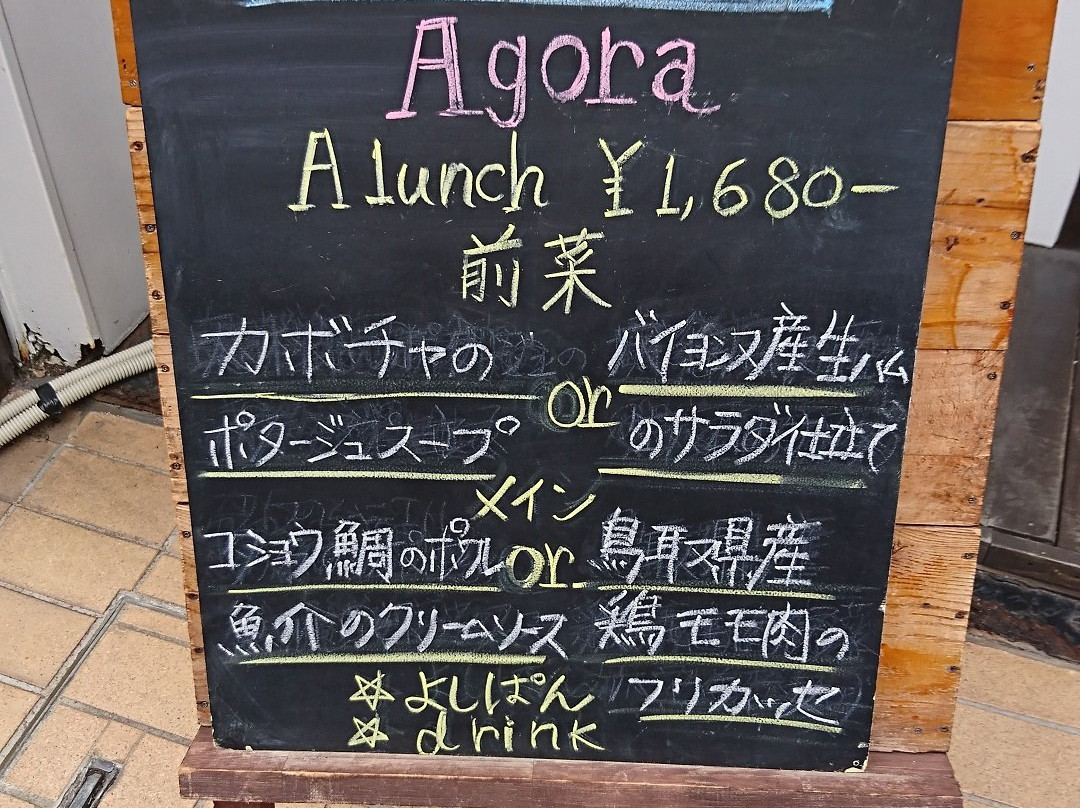 Agora
A lunch ¥1,680-
前菜
カボチャの
ポタージュスープ
or
バイヨンヌ産生ハム
のサラダ仕立て
メイン
コショウ鯛のポワレ
魚介のクリームソース
or
鳥取県産
鶏モモ肉の
フリカッセ
☆よしぱん
☆drink